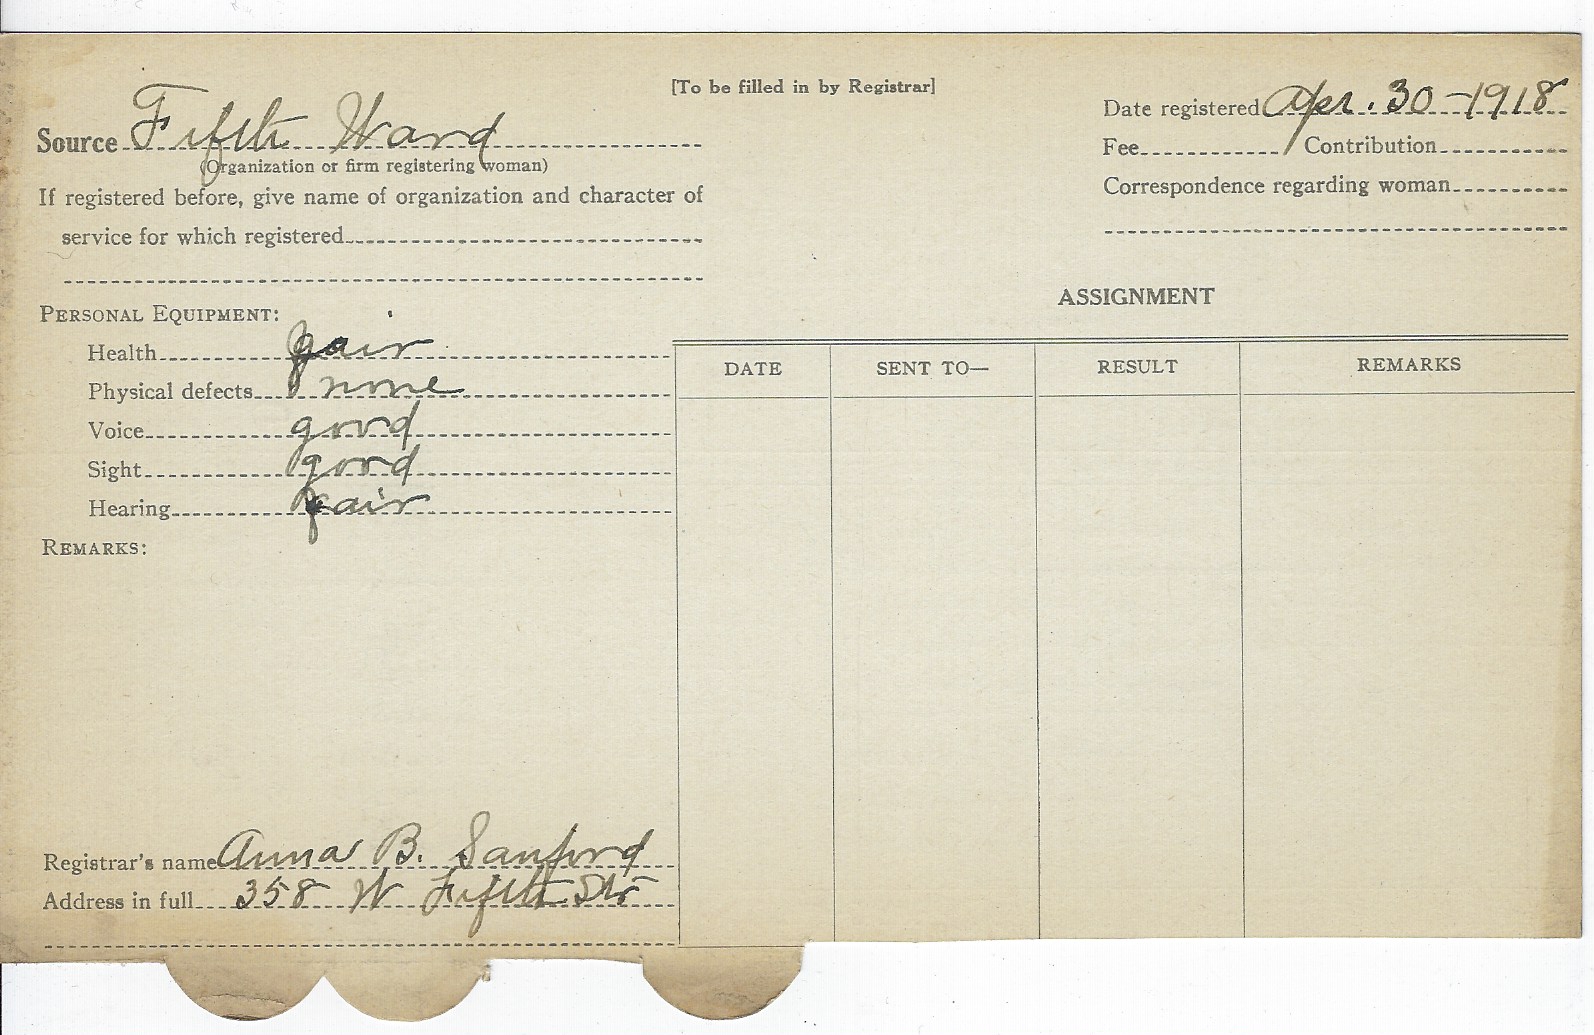 [To be filled in by Registrar]
Source Fifth Ward
(Organization or firm registering woman)
If registered before, give name of organization and character of
service for which registered
Date registered Apr. 30-1918
Fee Contribution
Correspondence regarding woman
PERSONAL EQUIPMENT:
Health fair
Physical defects none
Voice good
Sight good
Hearing fair
REMARKS:
Registrar's name Anna B. Sanford
Address in full 358 W Fifth Str
ASSIGNMENT
DATE SENT TO— RESULT REMARKS